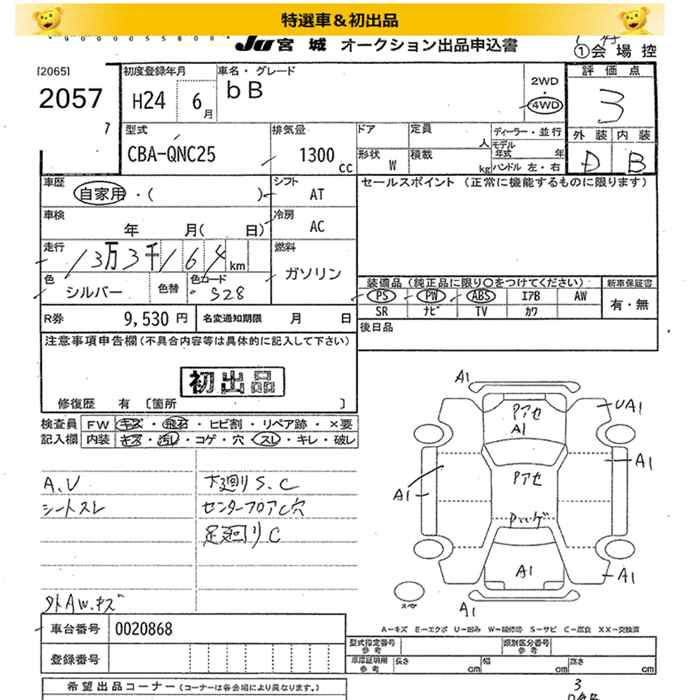 特選車＆初出品
Ju 宮城 オークション出品申込書
①会場控
[2065]
2057
初度登録年月
H24 6月
車名・グレード
bB
2WD
4WD
評価点
3
外装 内装
D B
型式
CBA-QNC25
排気量
1300 cc
ドア 定員 人
形状 W 積載 kg
ディーラー・並行
モデル年式 年
ハンドル 左・右
車歴
自家用・( )
シフト AT
セールスポイント (正常に機能するものに限ります)
車検 年 月( 日)
冷房 AC
走行
13万3千164km
燃料
ガソリン
色
シルバー
色替
色コード
S28
装備品 (純正品に限り○をつけてください)
新車保証書
PS PW ABS エアB AW
SR ナビ TV カワ
有・無
R券 9,530円
名変通知期限 月 日
後日品
注意事項申告欄 (不具合内容等は具体的に記入して下さい)
初出品
修復歴 有 〔箇所 〕
検査員記入欄
FW キズ・飛石・ヒビ割・リペア跡・×要
内装 キズ・汚レ・コゲ・穴・スレ・キレ・破レ
A.U
シートスレ
下廻りS.C
センターフロアC穴
足廻りC
外AW.キズ
A1
Pアセ
A1
UA1
A1
Pアセ
A1
Pハゲ
A1
A1
A1
A―キズ E―エクボ U―凹み W―補修跡 S―サビ C―腐食 XX―交換済
車台番号 0020868
登録番号
型式指定番号 参考
類別区分番号 参考
車庫証明用 参考 長さ cm 幅 cm 高さ cm
希望出品コーナー (コーナーは各会場により異なります。)
3